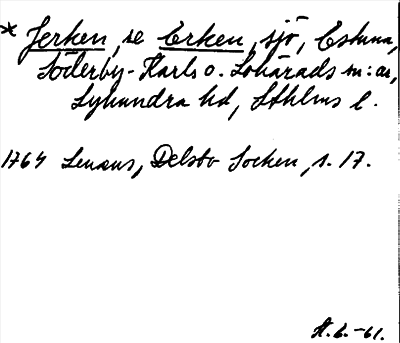 * Jerken, se Erken, sjö, Estuna,
Söderby-Karls o. Lohärads sn:ar,
Lyhundra hd, Sthlms l.
1764 Lenæus, Delsbo Socken, s. 17.
A.E. -61.